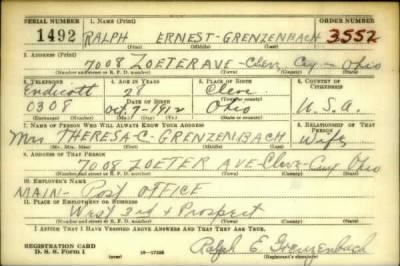 SERIAL NUMBER 1. NAME (Print) ORDER NUMBER
1492 RALPH ERNEST-GRENZENBACH 3552
(First) (Middle) (Last)
2. ADDRESS (Print)
7008 LOETER AVE-Cleve. Cy-Ohio
(Number and street or R. F. D. number) (Town) (County) (State)
3. TELEPHONE 4. AGE IN YEARS 5. PLACE OF BIRTH 6. COUNTRY OF CITIZENSHIP
Endicott 28 Cleve.
DATE OF BIRTH
0308 Oct. 7-1912 Ohio U.S.A.
7. NAME OF PERSON WHO WILL ALWAYS KNOW YOUR ADDRESS 8. RELATIONSHIP OF THAT PERSON
Mrs THERESA-C-GRENZENBACH Wife
(Mr., Mrs., Miss) (First) (Middle) (Last)
9. ADDRESS OF THAT PERSON
7008 LOETER AVE-Cleve-Cuy Ohio
(Number and street or R. F. D. number) (Town) (County) (State)
10. EMPLOYER'S NAME
MAIN-Post OFFICE
11. PLACE OF EMPLOYMENT OR BUSINESS
West 3rd + Prospect
(Number and street or R. F. D. number) (Town) (County) (State)
I AFFIRM THAT I HAVE VERIFIED ABOVE ANSWERS AND THAT THEY ARE TRUE.
REGISTRATION CARD
D. S. S. Form 1 Ralph E. Grenzenbach
(Registrant's signature)